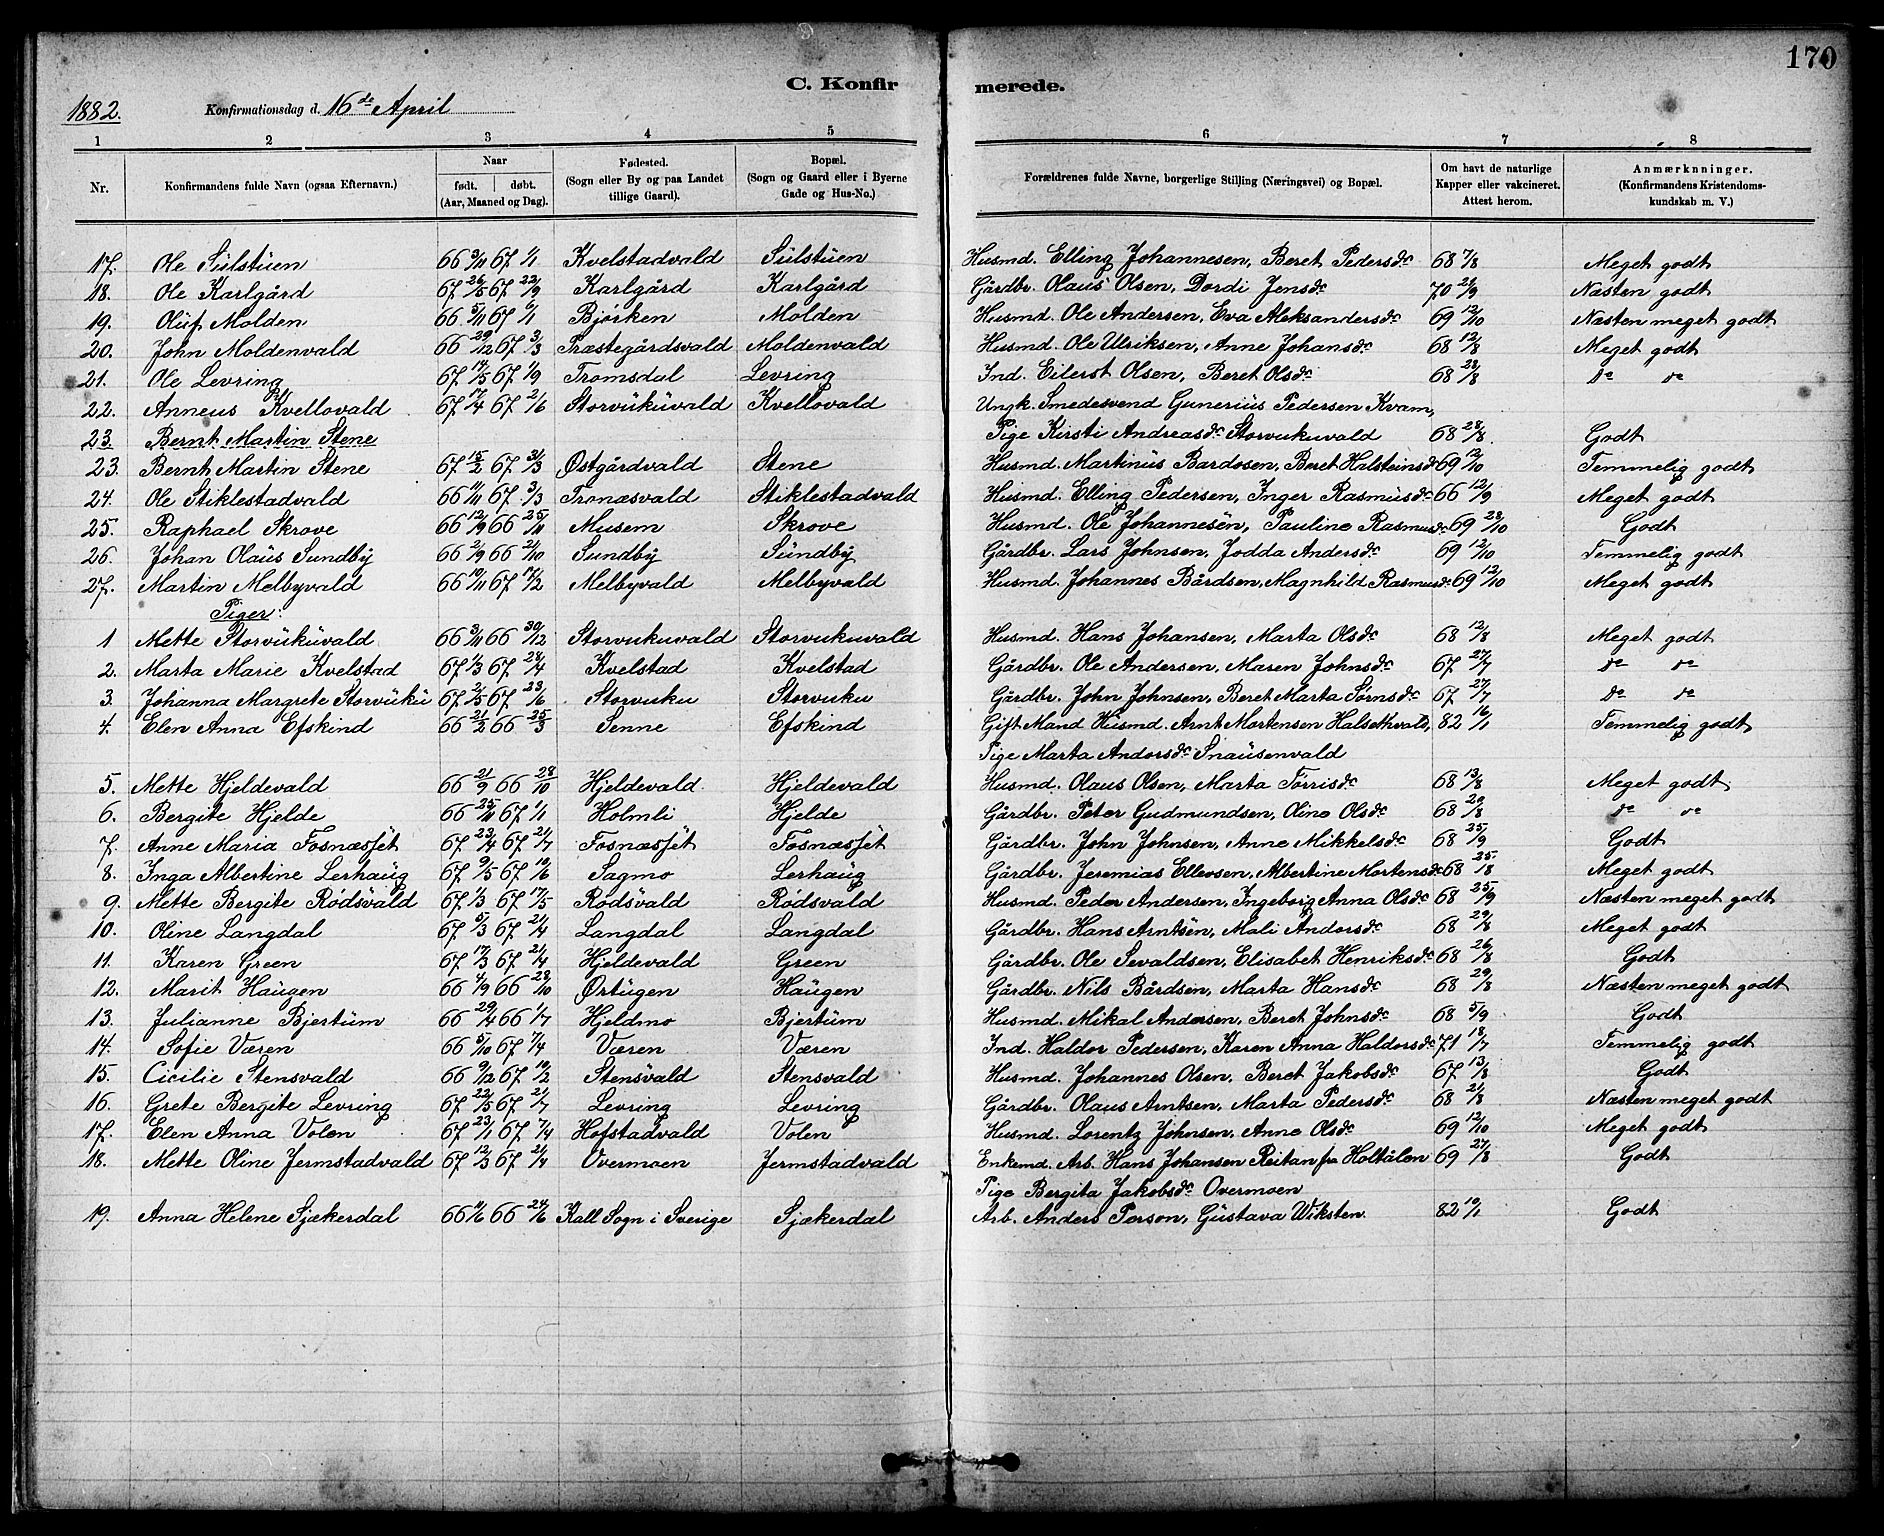 170
C. Konfirmerede.
1882. Konfirmationsdag d. 16de April
1 2 3 4 5 6 7 8
Nr. Konfirmandens fulde Navn (ogsaa Efternavn.) Naar født. døbt. (Aar, Maaned og Dag). Fødested. (Sogn eller By og paa Landet tillige Gaard). Bopæl. (Sogn og Gaard eller i Byerne Gade og Hus-No.) Forældrenes fulde Navne, borgerlige Stilling (Næringsvei) og Bopæl. Om havt de naturlige Kapper eller vakcineret. Attest herom. Anmærknninger. (Konfirmandens Kristendomskundskab m. V.)
17. Ole Sülstüen 66 3/11 67 1/1 Kvelstadvald Sülstüen Husmd. Elling Johannesen, Beret Pedersdr 68 7/8 Meget godt
18. Ole Karlgård 67 26/5 67 22/9 Karlgård Karlgård Gårdbr. Olaus Olsen, Dordi Jensdr 70 21/9 Næsten godt
19. Olüf Molden 66 5/11 67 1/1 Bjørken Molden Husmd. Ole Andersen, Eva Aleksandersdr 69 12/10 Næsten meget godt
20. John Moldenvald 66 29/12 67 3/3 Præstegårdsvald Moldenvald Husmd. Ole Ulriksen, Anne Johansdr 68 12/8 Meget godt
21. Ole Levring 67 14/5 67 1/9 Tromsdal Levring Ind. Eilerst Olsen, Beret Olsdr 68 29/8 do do
22. Anneus Kvellovald 67 17/4 67 2/6 Storvükuvald Kvellovald Ungk. Smedesvend Gunerius Pedersen Kvam,
23. Bernt Martin Stene Pige Kirsti Andreasdr Storvukuvald 68 28/8. Godt
23. Bernt Martin Stene 67 15/2 67 31/3 Østgårdvald Stene Husmd. Martinüs Bardosen, Beret Halsteinsdr 69 12/10 Temmelig godt
24. Ole Stiklestadvald 66 11/11 67 3/3 Tronæsvald Stiklestadvald Husmd. Elling Pedersen, Inger Rasmusdr 66 12/9 Meget godt
25. Raphael Skrove 66 12/9 66 25/11 Musem Skrove Husmd. Ole Johannesen, Pauline Rasmusdr 69 28/10 Godt
26. Johan Olaüs Sundby 66 2/9 66 2/10 Sundby Sündby Gårdbr. Lars Johnsen, Jodda Andersdr 69 12/10 Temmelig godt
27. Martin Melbyvald 66 10/11 67 17/2 Melbyvald Melbyvald Husmd. Johannes Bårdsen, Magnhild Rasmusdr 69 12/10 Meget godt
Piger:
1 Mette Storvükuvald 66 3/11 66 30/12 Storvukuvald Storvukuvald Husmd. Hans Johansen, Marta Olsdr 68 12/8 Meget godt
2. Marta Marie Kvelstad 67 1/3 67 28/4 Kvelstad Kvelstad Gårdbr. Ole Andersen, Maren Johnsdr 67 27/7 do do
3. Johanna Margrete Storvükü 67 2/5 67 23/6 Storvuku Storvuku Gårdbr. John Johnsen, Beret Marta Sørnsdr 67 27/7 do do
4. Elen Anna Efskind 66 21/2 66 25/3 Senne Efskind Gift Mand Husmd. Arnt Mortensen Halsethvald, 82 16/1 Temmelig godt
Pige Marta Andorsdr Snaüsenvald
5. Mette Hjeldevald 66 21/9 66 28/10 Hjeldevald Hjeldevald Husmd. Olaus Olsen, Marta Tørrisdr 68 13/8 Meget godt
6. Bergite Hjelde 66 25/11 67 1/1 Holmli Hjelde Gårdbr. Peter Gudmundsen, Oline Olsdr 68 29/8 do do
7. Anne Maria Fosnæsjet 67 23/4 67 21/7 Fosnæsjet Fosnæsjet Gårdbr. John Johnsen, Anne Mikkelsdr 68 25/9 Godt
8. Inga Albertine Lerhaüg 67 9/5 67 10/6 Sagmo Lerhaug Gårdbr. Jeremias Ellevsen, Albertine Mortensdr 68 25/8 Meget godt
9. Mette Bergite Rødsvald 67 1/3 67 17/5 Rødsvald Rødsvald Husmd. Peder Andersen, Ingeborg Anna Olsdr 68 25/9 Næsten meget godt
10. Oline Langdal 67 5/3 67 21/4 Langdal Langdal Gårdbr. Hans Arntsen, Mali Andorsdr 68 29/8 Meget godt
11. Karen Green 67 17/3 67 21/4 Hjeldevald Green Gårdbr. Ole Sevaldsen, Elisabet Henriksdr 68 26/8 Godt
12. Marit Haügen 66 4/9 66 28/10 Ørtügen Haügen Gårdbr. Nils Bårdsen, Marta Hansdr 68 29/8 Næsten meget godt
13. Julianne Bjertüm 66 29/4 66 1/7 Hjeldmo Bjertüm Husmd. Mikal Andersen, Beret Johnsdr 68 5/9 Godt
14. Sofie Væren 66 5/10 67 7/4 Væren Væren Ind. Haldor Pedersen, Karen Anna Haldorsdr 71 18/7 Temmelig godt
15. Cicilie Stensvald 66 9/12 67 10/2 Stensvald Stensvald Husmd. Johannes Olsen, Beret Jakobsdr 67 13/8 Godt
16. Grete Bergite Levring 67 22/5 67 21/7 Levring Levring Gårdbr. Olaus Arntsen, Marta Pedersdr 68 21/8 Næsten meget godt
17. Elen Anna Volen 67 23/1 67 7/4 Hofstadvald Volen Husmd. Lorentz Johnsen, Anne Olsdr 69 12/10 Meget godt
18. Mette Oline Jermstadvald 67 12/3 67 21/4 Overmoen Jermstadvald Enkemd. Arb. Hans Johansen Reitan fra Holtålen 69 27/8 Godt
Pige Bergita Jakobsdr Overmoen
19. Anna Helene Sjækerdal 66 11/6 66 24/6 Kall Sogn i Sverige Sjækerdal Arb. Anders Person, Güstava Wiksten. 82 19/1 Godt